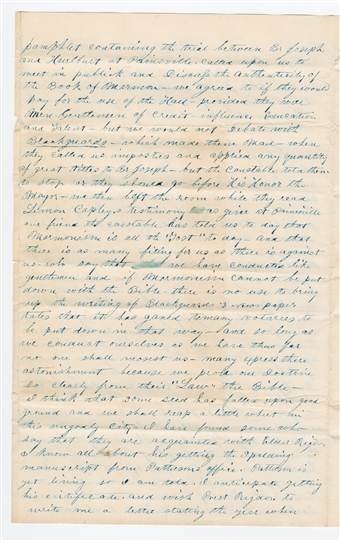 pamphlet containing the trial between Br Joseph
and Hurlburt at Painsville. Called upon us to
meet in publick and Discuss the authenticity of
the Book of Mormon - we agreed to if they would
pay for the use of the Hall - provided they were
Men Gentlemen of Credit influence Education
and Talent - but we would not Debate with
Blackguards - which made them Mad - when
they called us imposters and applied any quantity
of great titles to Br Joseph - but the Constable told them
to stop or they should go before His Honor the
Mayor - we then left the room while they read
Simon Copleys testimony as given at Painsville
our friend the constable has told us to day that
Mormonism is all the "Tost" to day - and that
there is as many siding for us as there is against
us - who say that we have conducted like
gentlemen and if Mormonism cannot be put
down with the Bible there is no use to bring
up the writing of Blackguards & News paper
tales that it has gained to many votaries to
be put down in that way - and so long as
we conduct ourselves as we have thus far
no one shall molest us - many express there
astonishment because we prove our Doctrine
so clearly from their "Law" the Bible -
I think that some seed has fallen upon good
ground and we shall reap a little wheat in
this ungodly City. I have found some who
say that they are acquainted with Elder Rigdon
I know all about his getting the Spalding
manuscript from Pattersons office. Patterson is
yet living so I am told. I anticipate getting
his certificate. and wish Prest Rigdon to
write me a letter stating the year when